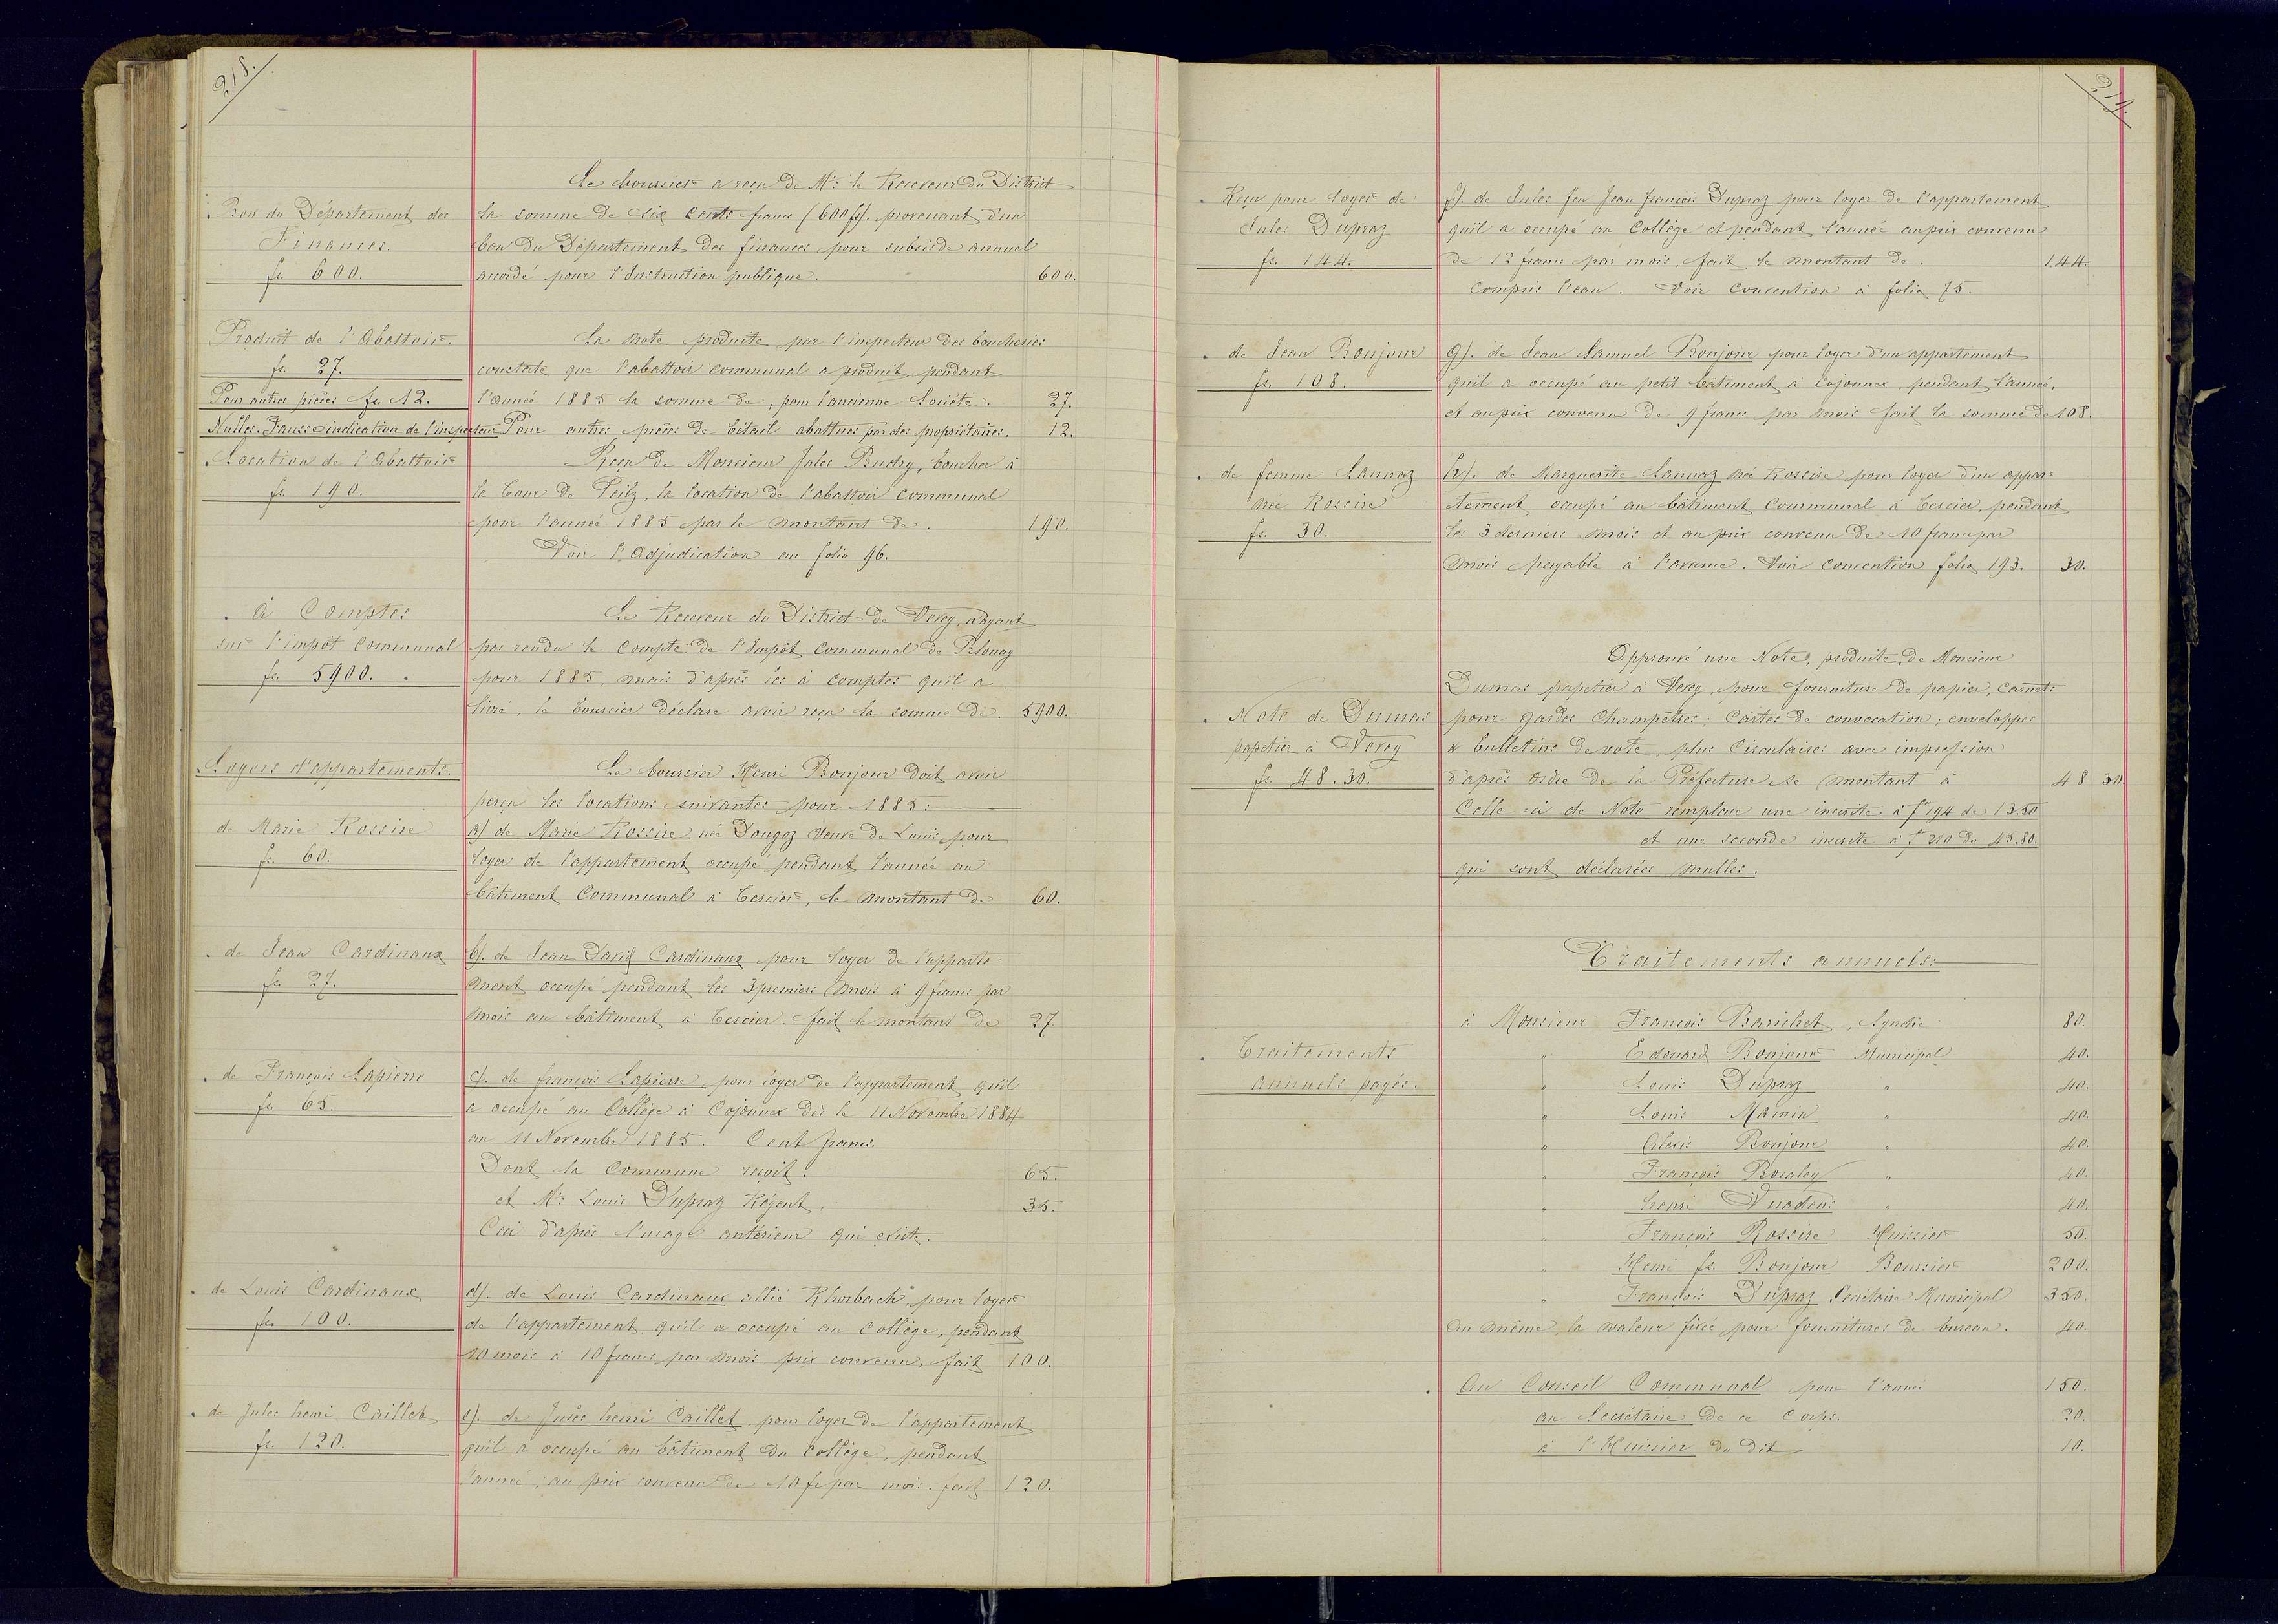 218.
Le boursier a reçu de Mr. le Receveur du District
Bon du Département des
Finances.
fr. 600.
la somme de six cents francs (600 fr). provenant d'un
bon du Département des finances pour subside annuel
accordé pour l'Instruction publique. 600.
Produit de l'Abattoir.
fr. 27.
Pour autres pièces fr. 12.
Nulles. Fausse indication de l'inspecteur
La note produite par l'inspecteur des boucheries
constate que l'abattoir communal a produit pendant
l'année 1885 la somme de, pour l'ancienne Société. 27.
Pour autres pièces de bétail abattues par des propriétaires. 12.
Location de l'Abattoir
fr. 190.
Reçu de Monsieur Jules Buchy, boucher à
la Tour de Peilz, la location de l'abattoir communal
pour l'année 1885 par le montant de. 190.
Voir l'Adjudication au folio 96.
à Comptes
sur l'impôt Communal
fr. 5900.
Le Receveur du District de Vevey, n'ayant
pas rendu le compte de l'Impôt communal de Blonay
pour 1885, mais d'après les à comptes qu'il a
livré, le boursier déclare avoir reçu la somme de. 5900.
Loyers d'appartements.
Le boursier Henri Bonjour doit avoir
perçu les locations suivantes pour 1885:
de Marie Rossire
fr. 60.
a). de Marie Rossire née Dougoz veuve de Louis pour
loyer de l'appartement occupé pendant l'année au
bâtiment Communal à Tercier, le montant de 60.
de Jean Cardinaux
fr. 27.
b). de Jean David Cardinaux pour loyer de l'apparte=
ment occupé pendant les 3 premiers mois à 9 francs par
mois au bâtiment à Tercier. fait le montant de 27
de François Lapierre
fr. 65.
c). de françois Lapierre pour loyer de l'appartement qu'il
a occupé au Collège à Cojonnex dès le 11 Novembre 1884
au 11 Novembre 1885. Cent francs.
Dont la Commune reçoit. 65.
et Mr. Louis Dupraz Régent. 35.
Ceci d'après l'usage antérieur qui existe.
de Louis Cardinaux
fr. 100.
d). de Louis Cardinaux allié Rhorbach, pour loyer
de l'appartement qu'il a occupé au Collège, pendant
10 mois à 10 francs par mois prix convenu, fait 100.
de Jules henri Caillet
fr. 120.
e). de Jules henri Caillet, pour loyer de l'appartement
qu'il a occupé au bâtiment du Collège, pendant
l'année, au prix convenu de 10 fr par mois fait 120.
Reçu pour loyer de
Jules Dupraz
fr. 144.
f). de Jules feu Jean françois Dupraz pour loyer de l'appartement
qu'il a occupé au Collège et pendant l'année au prix convenu
de 12 francs par mois, fait le montant de. 144.
compris l'eau. Voir convention à folio 75.
de Jean Bonjour
fr. 108.
g). de Jean Samuel Bonjour pour loyer d'un appartement
qu'il a occupé au petit bâtiment à Cojonnex, pendant l'année,
et au prix convenu de 9 francs par mois fait la somme de 108.
de femme Lannaz
née Rossire
fr. 30.
h). de Marguerite Lannaz née Rossire pour loyer d'un appar=
tement occupé au bâtiment Communal à Tercier, pendant
les 3 derniers mois et au prix convenu de 10 francs par
mois payable à l'avance. Voir convention folio 193. 30.
Approuvé une Note, produite, de Monsieur
Dumas papetier à Vevey, pour fourniture de papier, carnets
Note de Dumas
papetier à Vevey
fr. 48.30.
pour gardes Champêtres; Cartes de convocation; enveloppes
& bulletins de vote, plus Circulaires avec impression
d'après ordre de la Préfecture se montant à 48 30.
Celle-ci de Note remplace une inscrite à fo 194 de 13.50
et une seconde inscrite à fo 210 de 45.80.
qui sont déclarées nulles.
Traitements annuels:
Traitements
annuels payés.
à Monsieur François Barichet, Syndic 80.
" Edouard Bonjour Municipal 40.
" Louis Dupraz " 40.
" Louis Mamin " 40.
" Alexis Bonjour " 40.
" François Boraley " 40.
" henri Vuadens " 40.
" François Rossire Huissier 50.
" Henri fs. Bonjour Boursier 200.
" François Dupraz Secrétaire Municipal 350.
au même, la valeur fixée pour fournitures de bureau. 40.
Au Conseil Communal pour l'année 150.
au Secrétaire de ce Corps. 20.
à l'Huissier du dit 10.